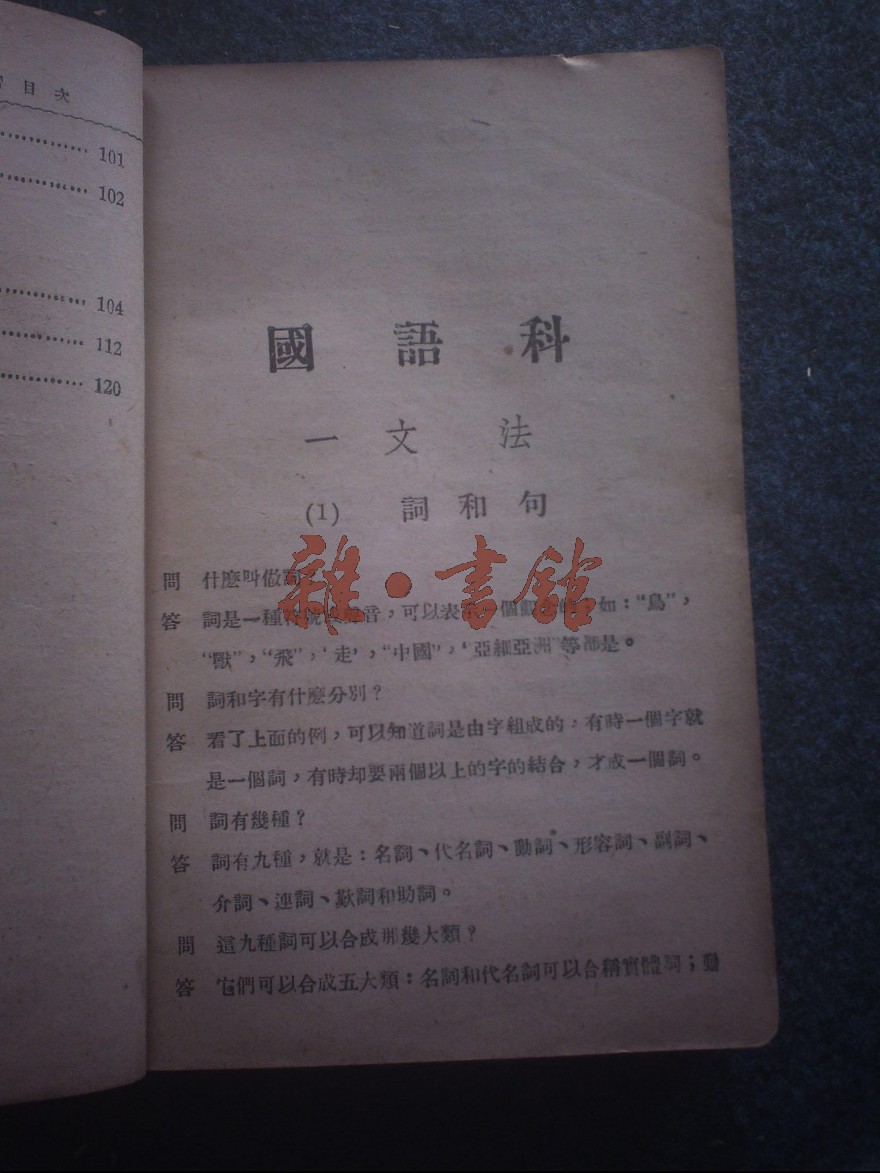 目次
101
102
104
112
120
國語科
一 文法
(1) 詞和句
雜·書館
問 什麼叫做詞?
答 詞是一種 音,可以表 個 如:“鳥”,
“獸”,“飛”,‘走’,“中國”,‘亞細亞洲”等都是。
問 詞和字有什麼分別?
答 看了上面的例,可以知道詞是由字組成的,有時一個字就
是一個詞,有時却要兩個以上的字的結合,才成一個詞。
問 詞有幾種?
答 詞有九種,就是:名詞、代名詞、動詞、形容詞、副詞、
介詞、連詞、歎詞和助詞。
問 這九種詞可以合成那幾大類?
答 它們可以合成五大類:名詞和代名詞可以合稱實體詞;動